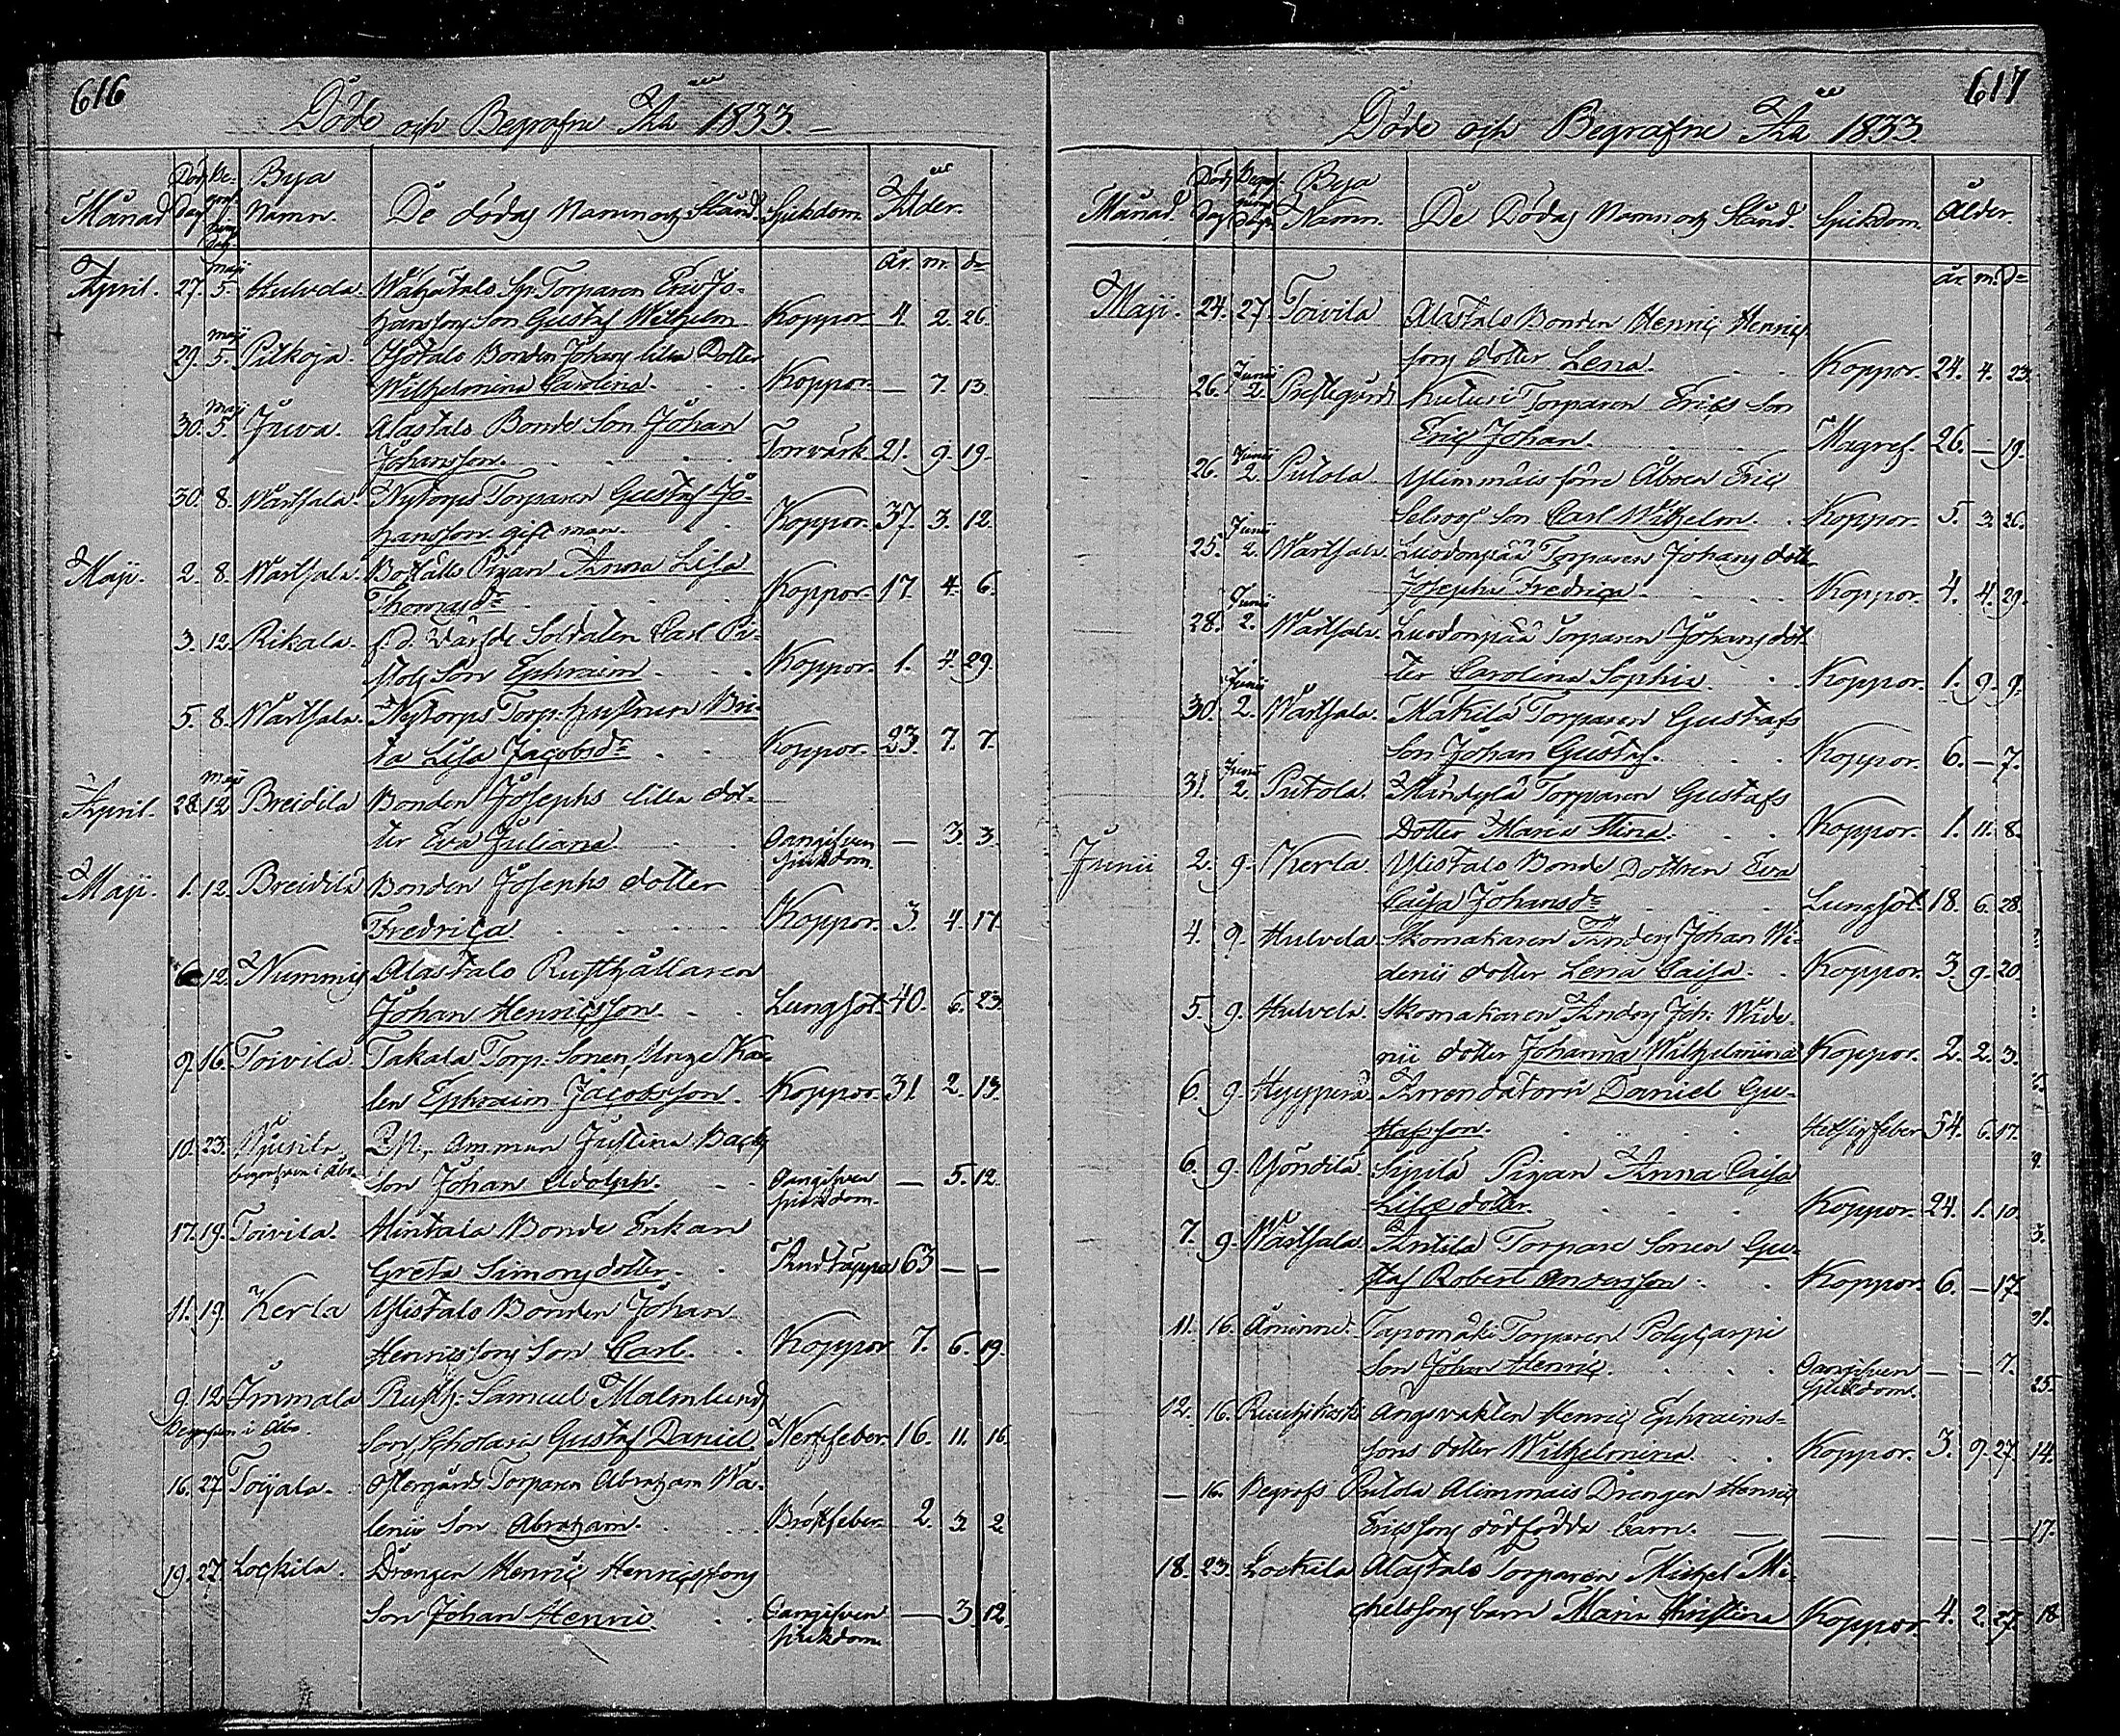 616
Döde och Begrafne Åhr 1833.
Månad Död Dag Begrafnings Dag Bya Namn. De dödas Namn och Stånd. Sjukdom. Ålder.
År. m. d.
April. 27. maji 5. Hulvela. Torparen Eric Jo-
hanssons Son Gustaf Wilhelm Koppor. 4. 2. 26.
29. maji 5. Pitkoja. Bonden Johans lilla Dotter
Wilhelmina Carolina. Koppor. — 7. 13.
30. maji 5. Juva. Alastalo Bonde Son Johan
Johansson. Torrvärk 21. 9. 19.
30. 8. Wartsala. Nytorps Torparen Gustaf Jo-
hansson gift man. Koppor. 37. 3. 12.
Maji. 2. 8. Wartsala. Pigan Anna Lisa
Thomasdr Koppor. 17. 4. 6.
3. 12. Rikala. f. d. Värfde Soldaten Carl
Son Ephraim Koppor. 1. 4. 29.
5. 8. Wartsala. Nytorps Torp. hustrun Bri-
ta Lisa Jacobsdr Koppor. 23. 7. 7.
April. 28. maji 12. Breidila Bonden Josephs lilla dot-
ter Eva Juliana Oangifven sjukdom — 3. 3.
Maji. 1. 12. Breidila Bonden Josephs dotter
Fredrica Koppor. 3. 4. 17.
6. 12. Nummis Alastalo Rusthållaren
Johan Henricsson. Lungsot. 40. 6. 23.
9. 16. Toivila Takala Torp. Sonen Unge Kar-
len Ephraim Jacobsson. Koppor. 31. 2. 13.
10. 23. begrafven i Åbo Amman Justina
Son Johan Adolph. Oangifven sjukdom. — 5. 12.
17. 19. Toivila. Hintala Bonde Enkan
Greta Simonsdotter. Andtäppa 63 — —
11. 19. Kerla Ylistalo Bonden Johan
Henricssons Son Carl. Koppor 7. 6. 19.
9. 12. Immala Rusth. Samuel Malmlunds
Begrafven i Åbo. Son, Scholaris Gustaf Daniel. Nerffeber. 16. 11. 16.
16. 27. Toijala. Östergårds Torparen Abraham Wa-
lenii Son Abraham. Bröstfeber. 2. 3. 2.
19. 27. Lockila. Drengen Henric Henricssons
Son Johan Henric. Oangifven sjukdom — 3. 12.
617
Döde och Begrafne Åhr 1833.
Månad. Död Dag Begrafnings Dagen Bya Namn. De Dödas Namn och Stånd. Sjukdom. Ålder.
år. m. d.
Maji. 24. 27. Toivila Alastalo Bonden Henric Henrics
sons dotter Lena. Koppor. 24. 4. 23.
26. Junii 2. Prestegård Torparen Erics Son
Eric Johan. Magref. 26. — 19.
26. Junii 2. Putola Ylimmäis förre Åboen Eric
Son Carl Wilhelm. Koppor. 5. 3. 26.
25. Junii 2. Wartsala. Luodonpää Torparen Johans dotter
Josepha Fredrica Koppor. 4. 4. 29.
28. Junii 2. Wartsala. Luodonpää Torparen Johans dot
ter Carolina Sophia. Koppor. 1. 9. 9.
30. Junii 2. Wartsala. Mäkilä Torparen Gustafs
Son Johan Gustaf. Koppor. 6. — 7.
31. Junii 2. Putola. Mändylä Torparen Gustafs
Dotter Maria Stina. Koppor. 1. 11. 8.
Junii 2. 9. Kerla. Ylistalo Bonde Dottren Eva
Caisa Johansdr Lungsot. 18. 6. 28.
4. 9. Hulvela. Skomakaren Anders Johan Wi-
denii dotter Lena Caisa. Koppor. 3. 9. 20.
5. 9. Hulvela. Skomakaren Anders Joh. Wide-
nii dotter Johanna Wilhelmina Koppor. 2. 2. 3.
6. 9. Hyyperä Arrendatorn Daniel Gu-
stafsson. Hetsig feber 54. 6. 17.
6. 9. Yöndilä Sipilä Pigan Anna Caisa
Lisædotter. Koppor. 24. 1. 10.
7. 9. Wartsala. Antila Torpare Sonen Gu-
staf Robert Andersson. Koppor. 6. — 17.
11. 16. Åminne. Tapomäki Torparen Polycarpi
Son Johan Henric. Oangifven sjukdom. — — 7.
12. 16. Ruuhikoski Ängsvakten Henric Ephraims-
sons dotter Wilhelmina. Koppor. 3. 9. 27.
— 16. Begrofs Putola Alimmais Drengen Henric
Ericssons dödfödda barn. — — — —
18. 23. Lockila Alastalo Torparen Michel Mi-
chelssons barn Maria Christina Koppor. 4. 2. 27.